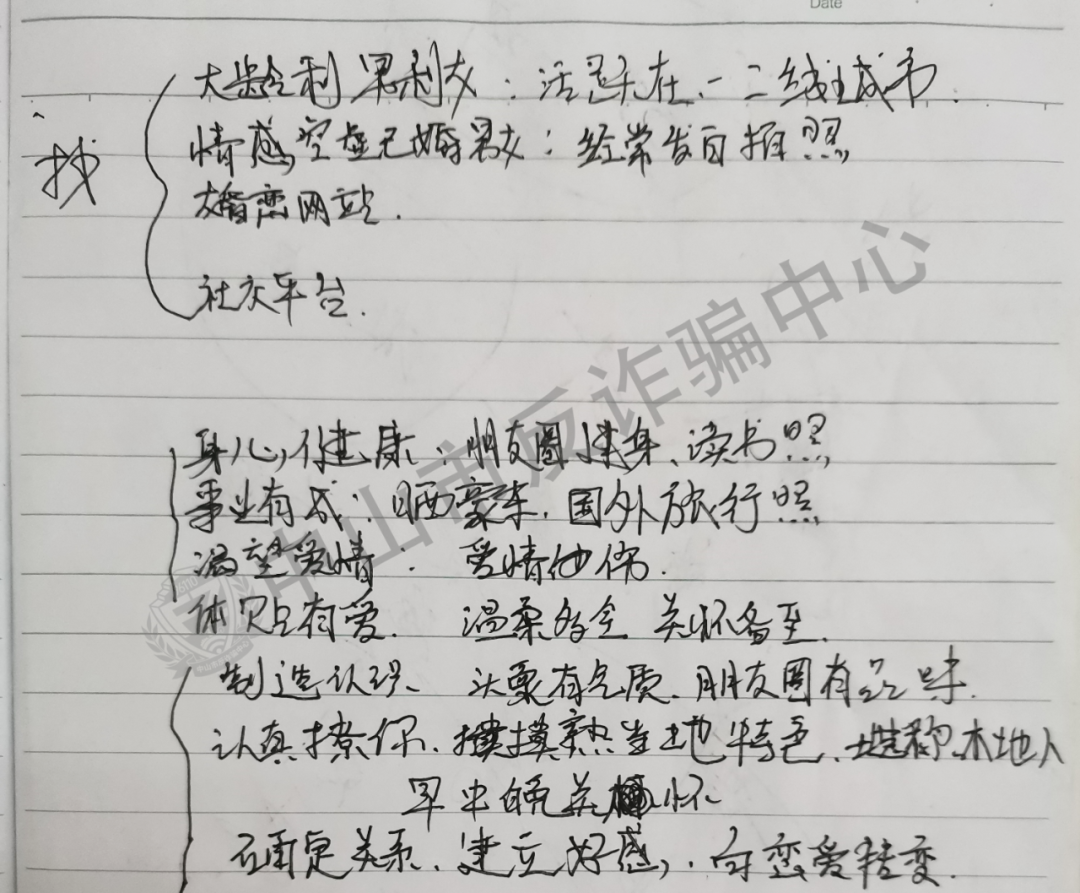 Date
大龄剩男剩女：活跃在一二线城市.
找
情感空虚已婚男女：经常发自拍照
婚恋网站.
社交平台.
身心健康：朋友圈健身、读书照
事业有成：晒豪车.国外旅行照
渴望爱情：爱情他伤.
体贴有爱. 温柔多金 关怀备至.
制造认识、头像有气质.朋友圈有品味.
认真撩你.摸熟当地特色.谎称本地人
早中晚关怀
确定关系.建立好感,.向恋爱转变.
中山市反诈骗中心